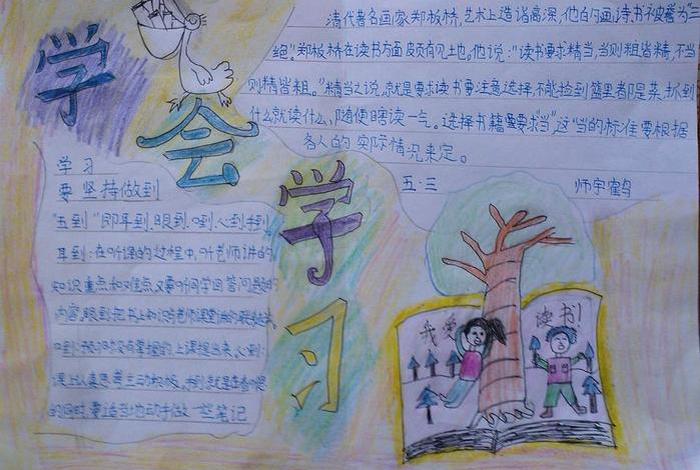 学
会
学
习
清代著名画家郑板桥,艺术上造诣高深,他的画诗书被誉为"三
绝"。郑板桥在读书方面颇有见地。他说:"读书要求精当,当则粗皆精,不当
则精皆粗。"精当之说,就是要求读书要注意选择,不能捡到篮里都是菜,抓到
什么就读什么、随便瞎读一气。选择书籍要求"当"这"当"的标准要根据
各人的实际情况来定。
五·三 师宇鹤
学习
要坚持做到
"五到"即耳到、眼到、口到、心到、手到。
耳到:在听课的过程中,听老师讲的
知识重点和难点,又要听同学回答问题的
内容,眼到:把书上知识与老师课堂讲的
口到: 上课提出来,心到:
课上认真思考主动积极,手到:就是在看
的同时,要适当地动手做一些笔记
我爱
读书!